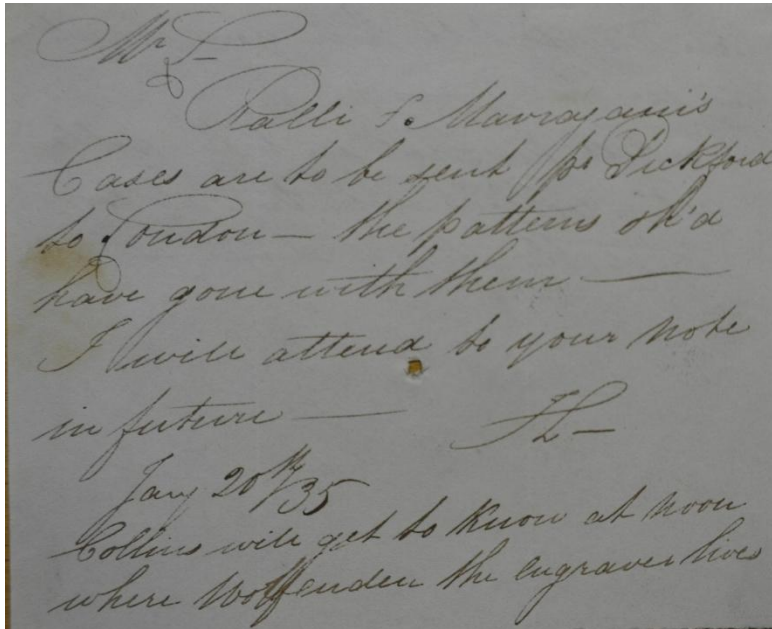 Mr S—
Ralli & Mavrojani's
Cases are to be sent pr Pickford
to London — the patterns sh'd
have gone with them —
I will attend to your note
in future — 
Jany 20th/35
Collins will get to know at noon
where Wolfenden the engraver lives